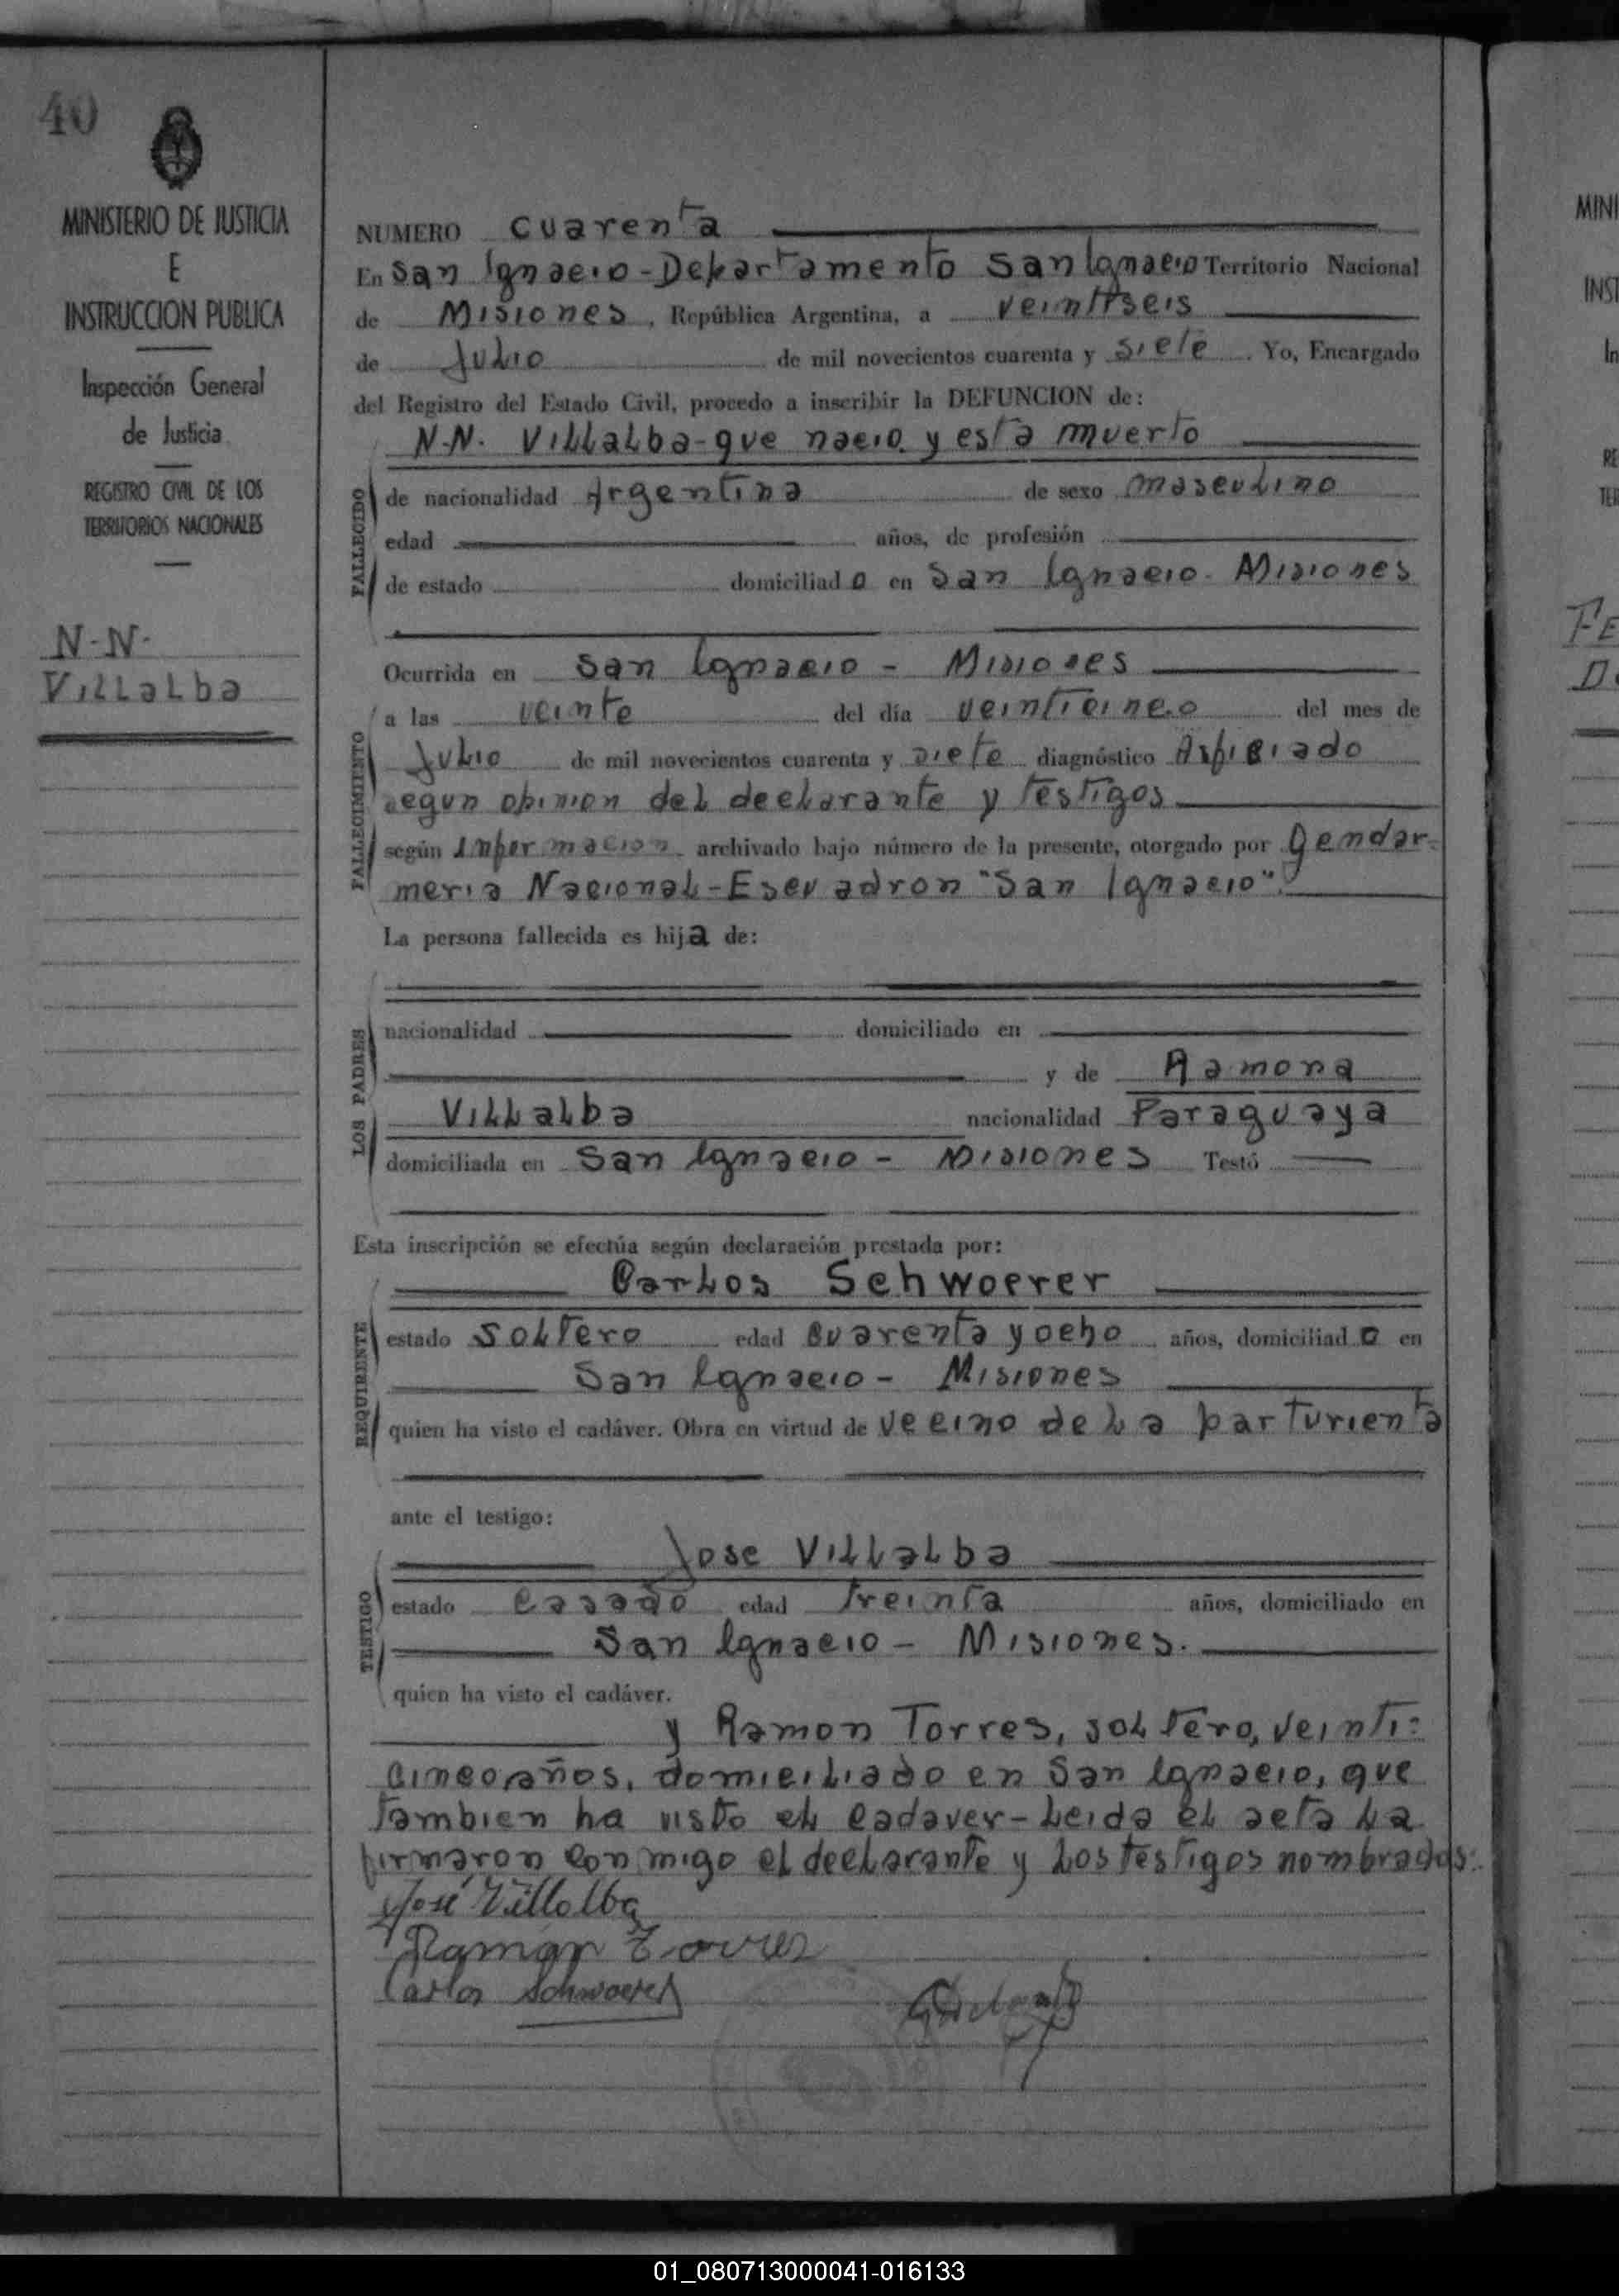 40
MINISTERIO DE JUSTICIA
E
INSTRUCCION PUBLICA
Inspección General
de Justicia
REGISTRO CIVIL DE LOS
TERRITORIOS NACIONALES
N-N-
Villalba
NUMERO cuarenta
En San Ignacio - Departamento San Ignacio Territorio Nacional
de Misiones, República Argentina, a veintiseis
de Julio de mil novecientos cuarenta y siete. Yo, Encargado
del Registro del Estado Civil, procedo a inscribir la DEFUNCION de:
N-N. Villalba - que nacio y esta muerto
FALLECIDO
de nacionalidad Argentina de sexo masculino
edad años, de profesión
de estado domiciliado en San Ignacio - Misiones
FALLECIMIENTO
Ocurrida en San Ignacio - Misiones
a las veinte del día veinticinco del mes de
Julio de mil novecientos cuarenta y siete diagnóstico Asficiado
segun opinion del declarante y testigos
según informacion archivado bajo número de la presente, otorgado por Gendar-
meria Nacional - Escuadron "San Ignacio".
La persona fallecida es hija de:
LOS PADRES
nacionalidad domiciliado en
y de Ramona
Villalba nacionalidad Paraguaya
domiciliada en San Ignacio - Misiones Testó
Esta inscripción se efectúa según declaración prestada por:
REQUIRENTE
Carlos Schwoerer
estado soltero edad cuarenta y ocho años, domiciliado en
San Ignacio - Misiones
quien ha visto el cadáver. Obra en virtud de vecino de la parturienta
ante el testigo:
TESTIGO
Jose Villalba
estado casado edad treinta años, domiciliado en
San Ignacio - Misiones.
quien ha visto el cadáver.
y Ramon Torres, soltero, veinti-
cinco años, domiciliado en San Ignacio, que
tambien ha visto el cadaver - Leida el acta la
firmaron conmigo el declarante y los testigos nombrados.
José Villalba
Ramón Torres
Carlos Schwoerer
MINI
INST
In
RE
TER
FE
D
01_080713000041-016133